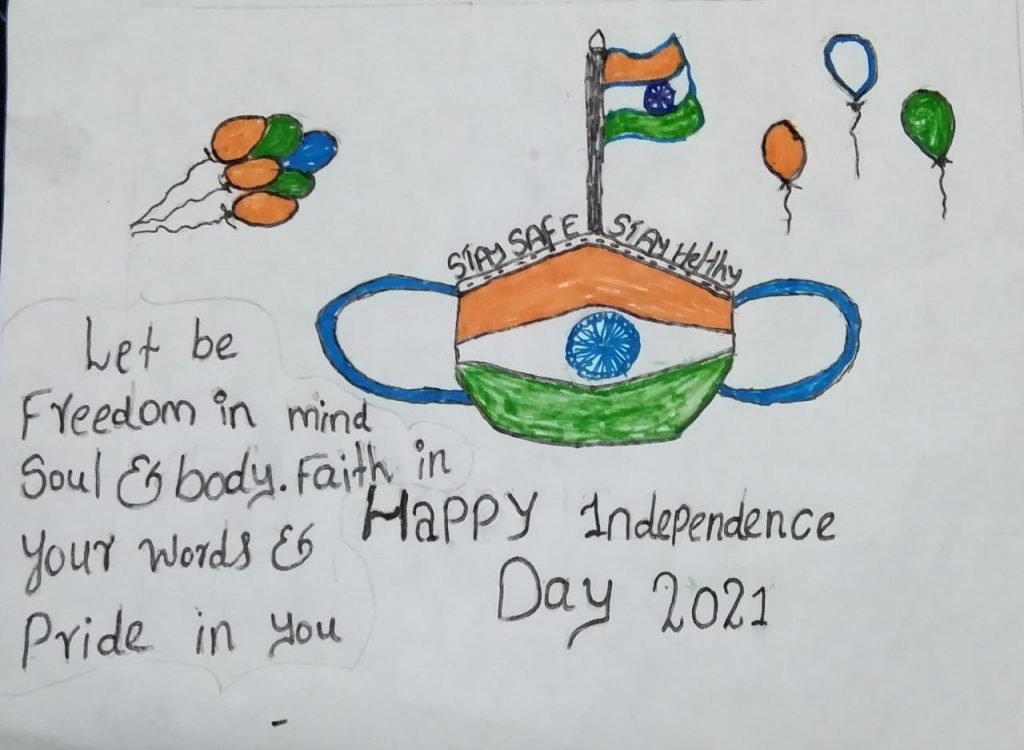 STAY SAFE STAY Helthy
Let be
Freedom in mind
Soul & body. Faith in
your words &
Pride in you
Happy Independence
Day 2021